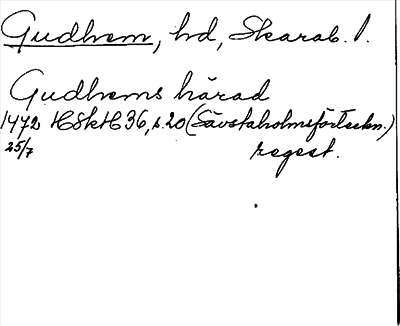 Gudhem, hd, Skarab. l.
Gudhems härad
1472 HSkH 36, s. 20 (Sävstaholmsförteckn.)
25/7 regest.